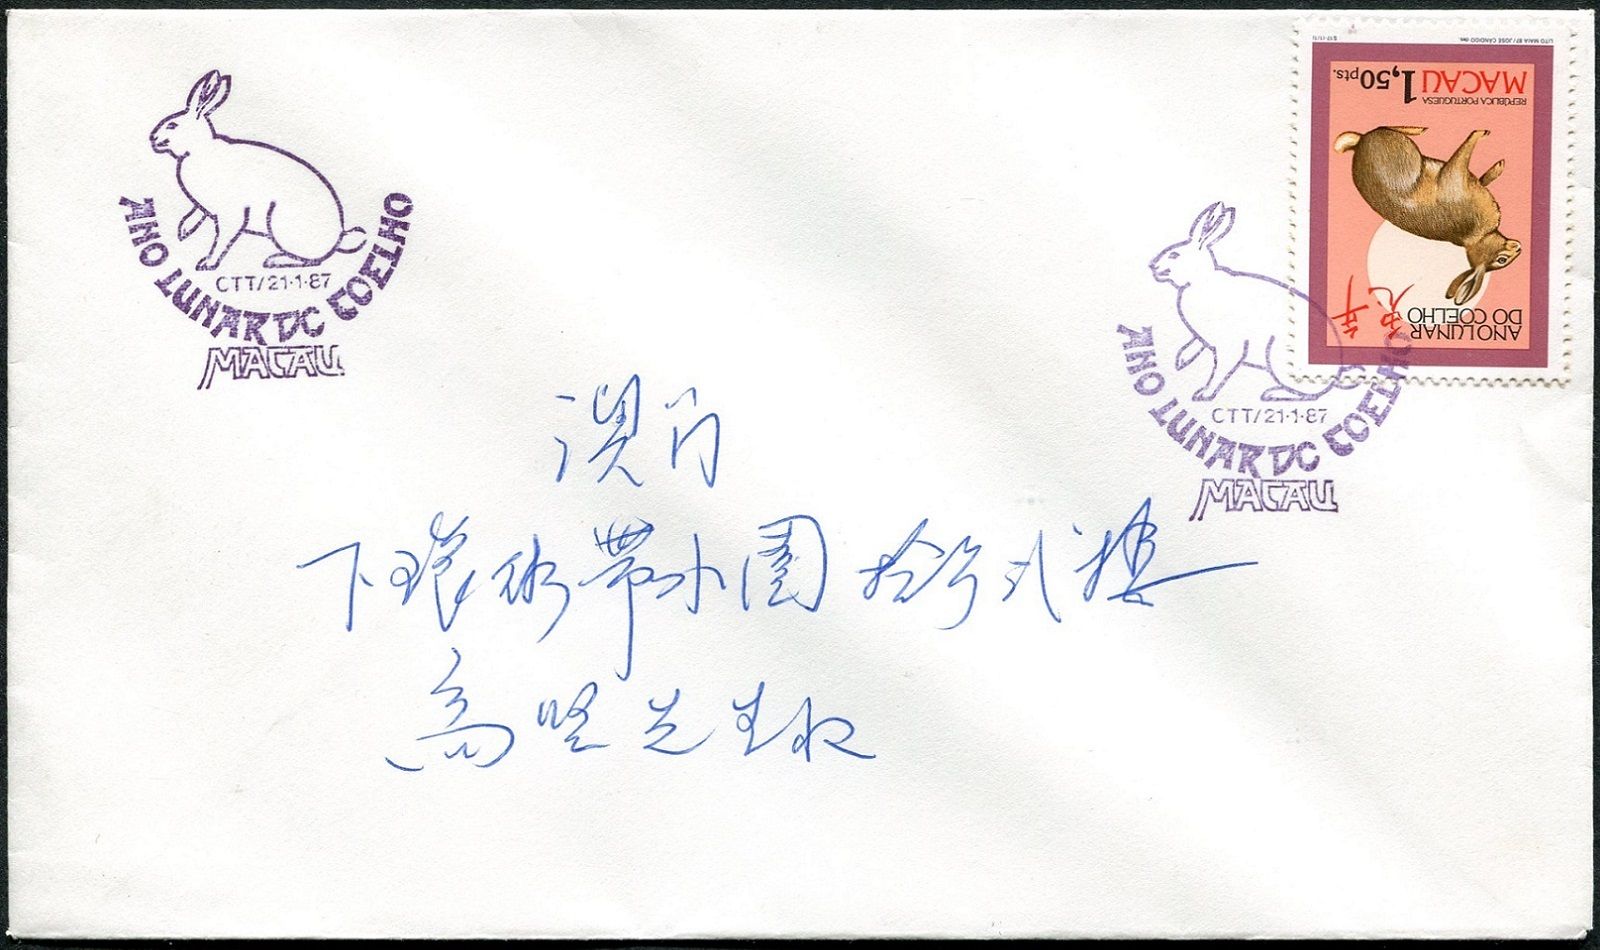 ANO LUNAR DO COELHO
CTT/21·1·87
MACAU
LITO MAIA 87 / JOSÉ CÂNDIDO des.
S 17-(1/1)
REPÚBLICA PORTUGUESA
MACAU 1,50 pts.
兔年
ANO LUNAR
DO COELHO
CTT/21·1·87
ANO LUNAR DO COELHO
MACAU
澳门
下環街 小園 拾号 楼
高 先生收